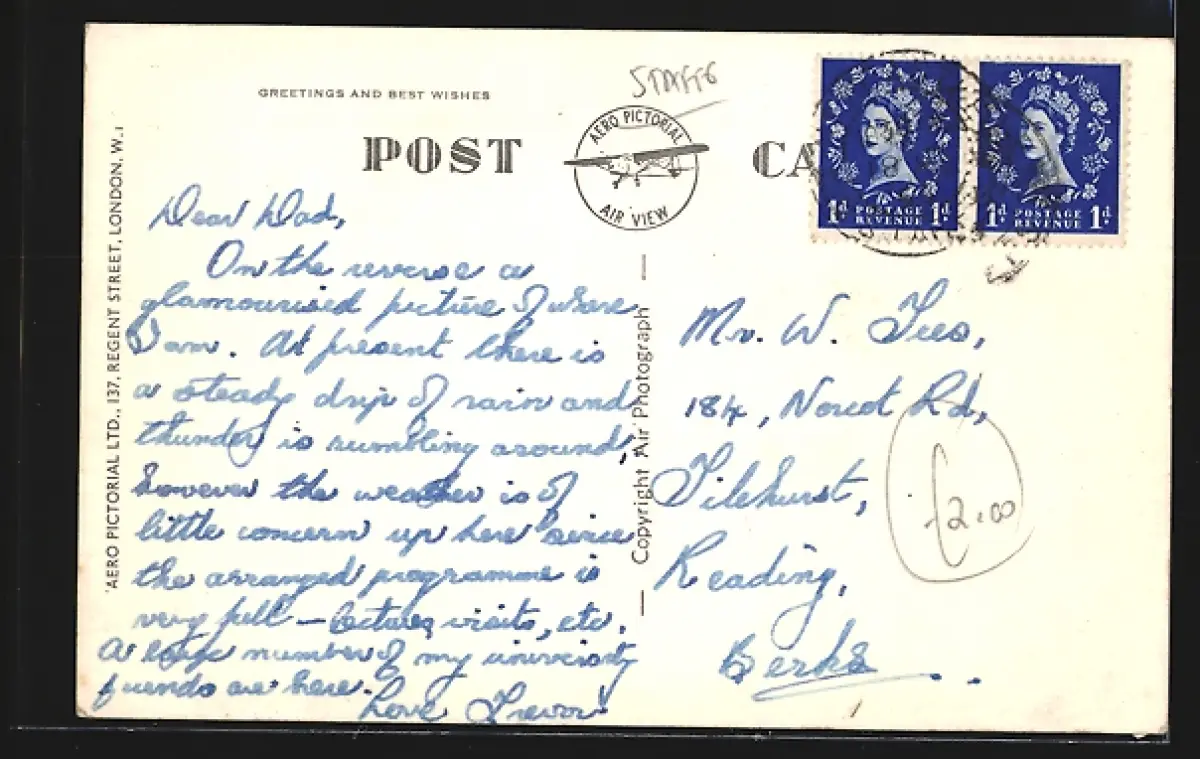 STAFFS
GREETINGS AND BEST WISHES
POST CA
AERO PICTORIAL
AIR VIEW
1d POSTAGE REVENUE 1d
1d POSTAGE REVENUE 1d
AERO PICTORIAL LTD., 137, REGENT STREET, LONDON, W.1
Copyright Air Photograph
Dear Dad,
On the reverse a
glamourised picture of where
I am. At present there is
a steady drip of rain and
thunder is rumbling around,
however the weather is of
little concern up here since
the arranged programme is
very full – lectures, visits, etc.
A large number of my university
friends are here.
Love Trevor
Mr. W. Tees,
184, Norcot Rd,
Tilehurst,
Reading,
Berks
£2.00